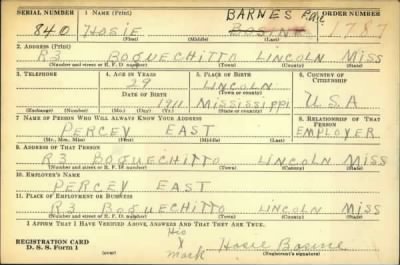 SERIAL NUMBER 1. NAME (Print) BARNES ORDER NUMBER
840 HOSIE 1787
(First) (Middle) (Last)
2. ADDRESS (Print)
R3 BOGUECHITTO LINCOLN MISS
(Number and street or R. F. D. number) (Town) (County) (State)
3. TELEPHONE 4. AGE IN YEARS 5. PLACE OF BIRTH 6. COUNTRY OF CITIZENSHIP
29 LINCOLN
(Town or county)
DATE OF BIRTH
1911 MISSISSIPPI U.S.A
(Exchange) (Number) (Mo.) (Day) (Yr.) (State or country)
7. NAME OF PERSON WHO WILL ALWAYS KNOW YOUR ADDRESS 8. RELATIONSHIP OF THAT PERSON
PERCEY EAST EMPLOYER
(Mr., Mrs., Miss) (First) (Middle) (Last)
9. ADDRESS OF THAT PERSON
R3 BOGUECHITTO LINCOLN MISS
(Number and street or R. F. D. number) (Town) (County) (State)
10. EMPLOYER'S NAME
PERCEY EAST
11. PLACE OF EMPLOYMENT OR BUSINESS
R3 BOGUECHITTO LINCOLN MISS
(Number and street or R. F. D. number) (Town) (County) (State)
I AFFIRM THAT I HAVE VERIFIED ABOVE ANSWERS AND THAT THEY ARE TRUE.
His
REGISTRATION CARD X Hosie
D. S. S. Form 1 mark (Registrant's signature)